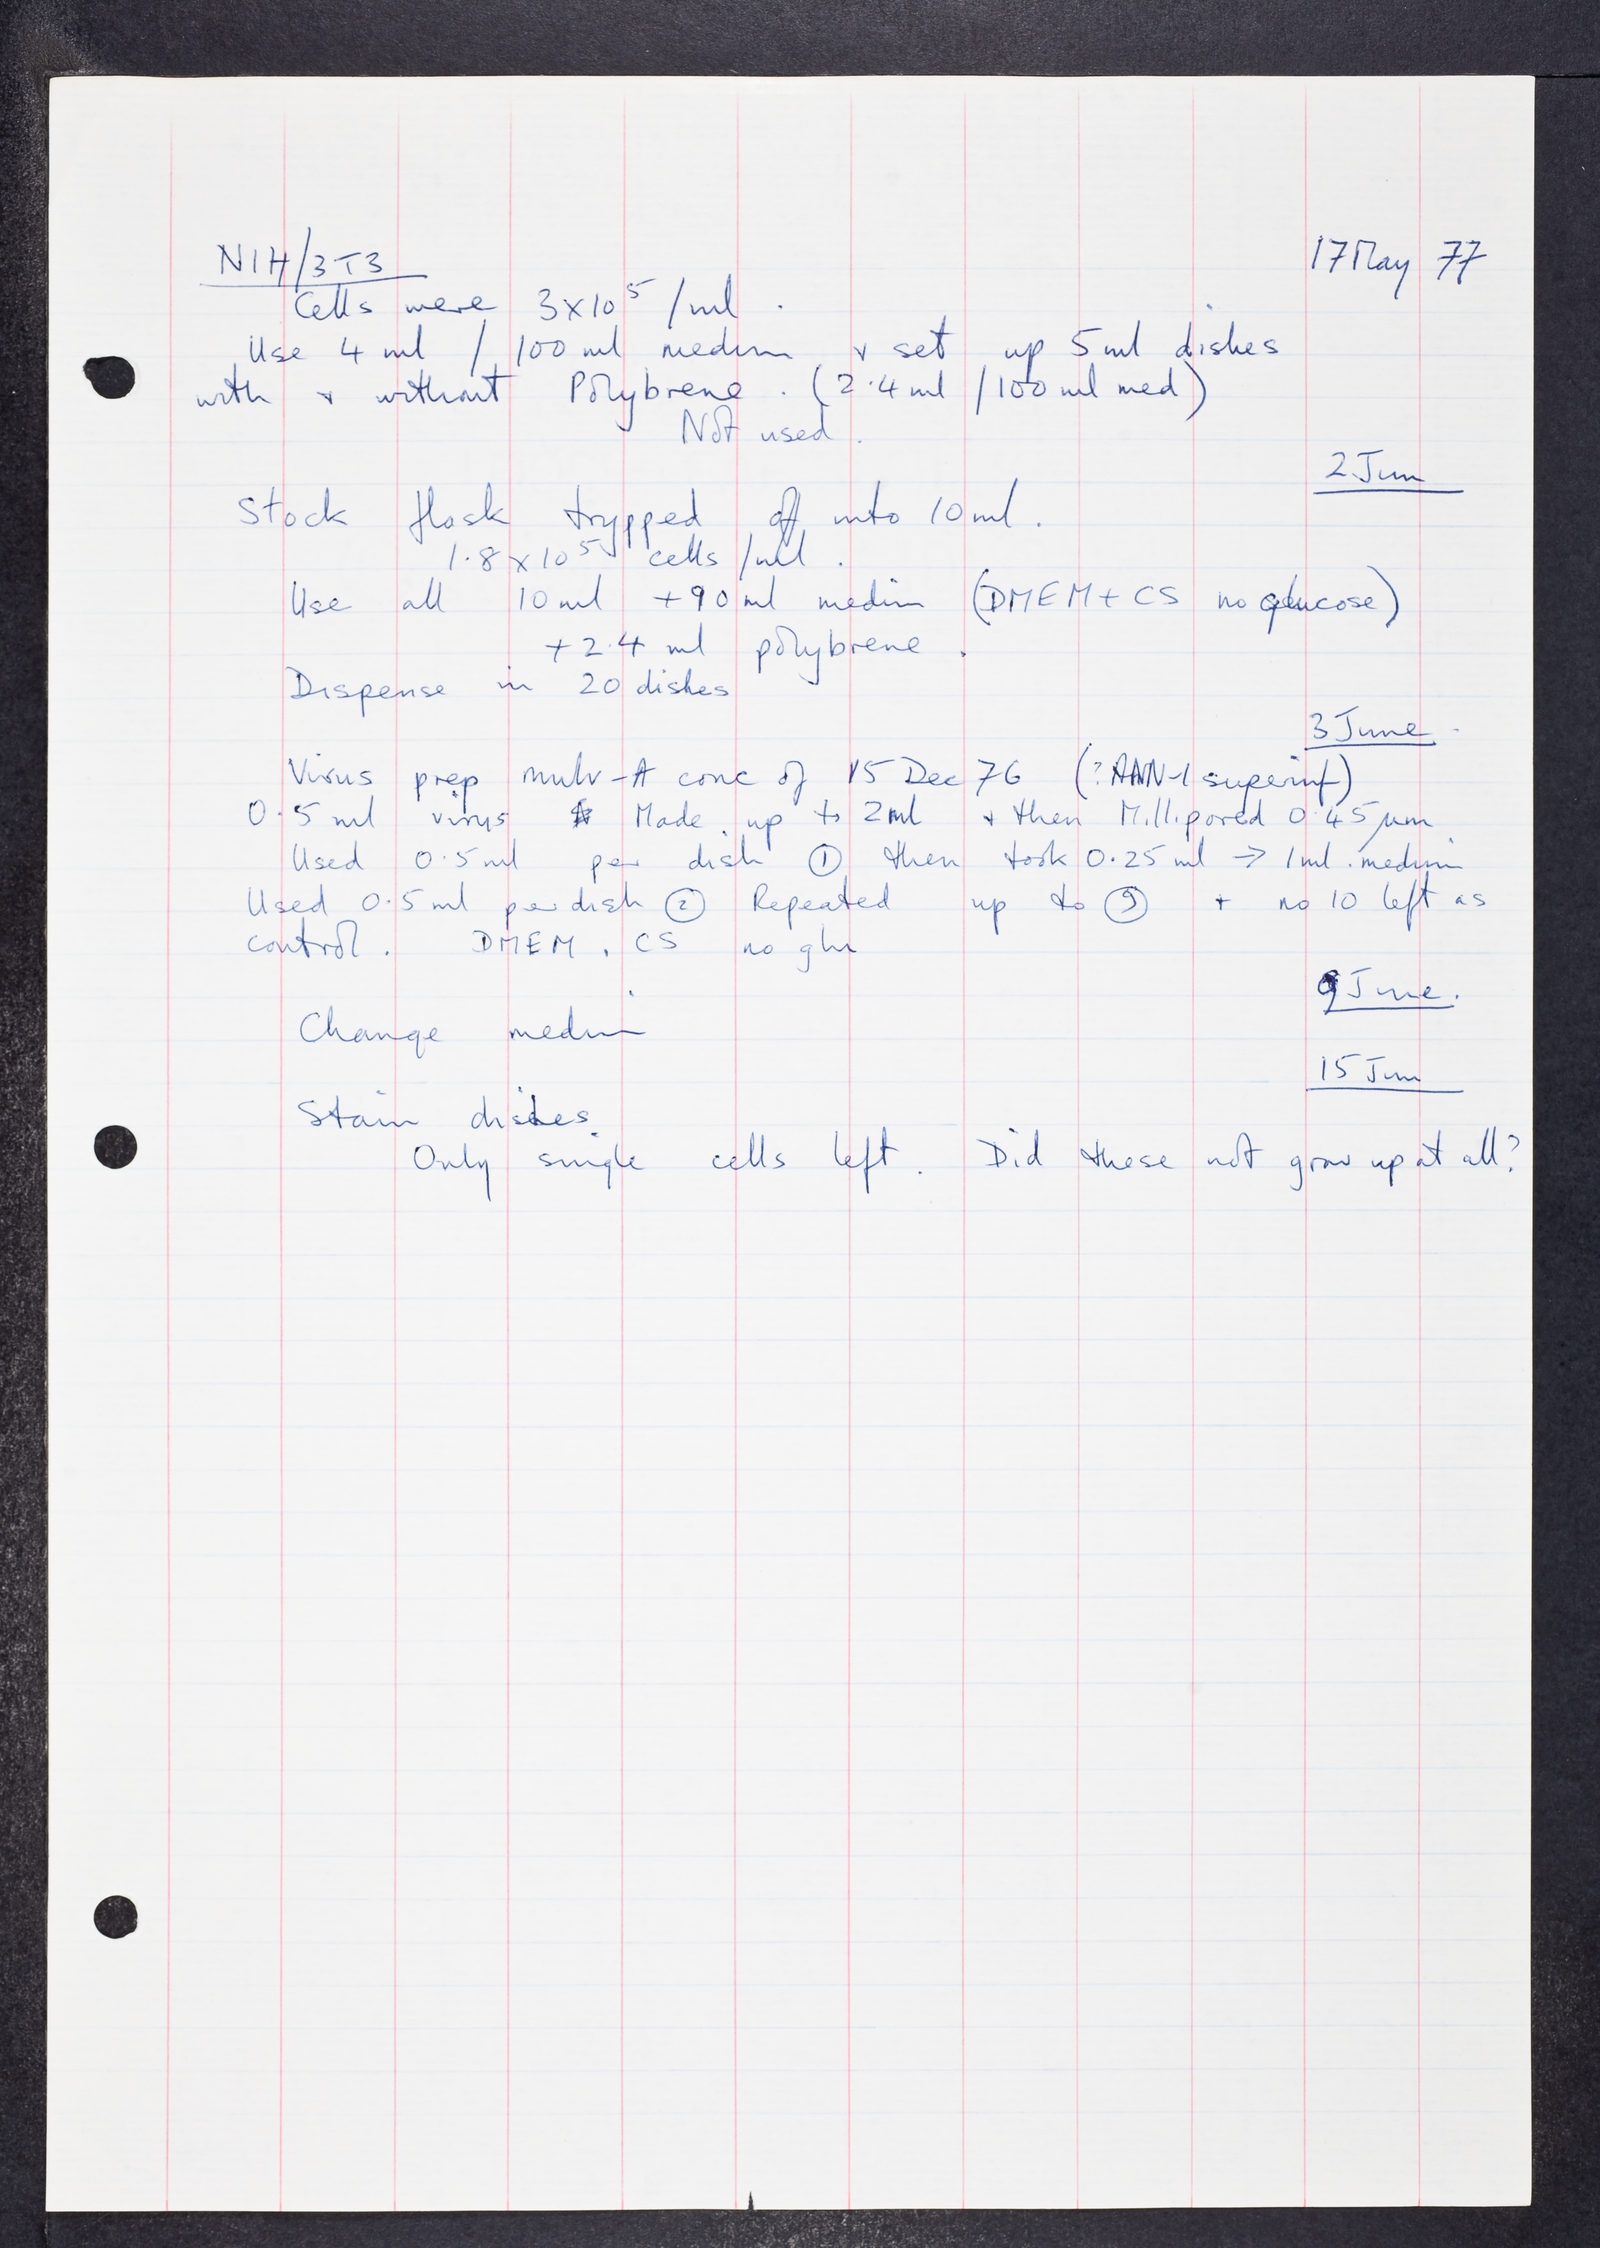 NIH/3T3
17 May 77
Cells were 3x10⁵/ml.
Use 4 ml / 100 ml medium + set up 5 ml dishes
with + without Polybrene. (2.4 ml / 100 ml med)
Not used.
2 Jun
Stock flask trypped off into 10 ml.
1.8 x 10⁵ cells/ml.
Use all 10 ml + 90 ml medium (DMEM + CS no glucose)
+ 2.4 ml polybrene.
Dispense in 20 dishes
3 June
Virus prep mulv-A conc of 15 Dec 76 (? superinf)
0.5 ml virus Made up to 2 ml + then Millipored 0.45 µm
Used 0.5 ml per dish ① then took 0.25 ml → 1 ml. medium
Used 0.5 ml per dish ② Repeated up to ⑨ + no 10 left as
control. DMEM. CS no glu
9 June.
Change medium
15 Jun
Stain dishes
Only single cells left. Did these not grow up at all?